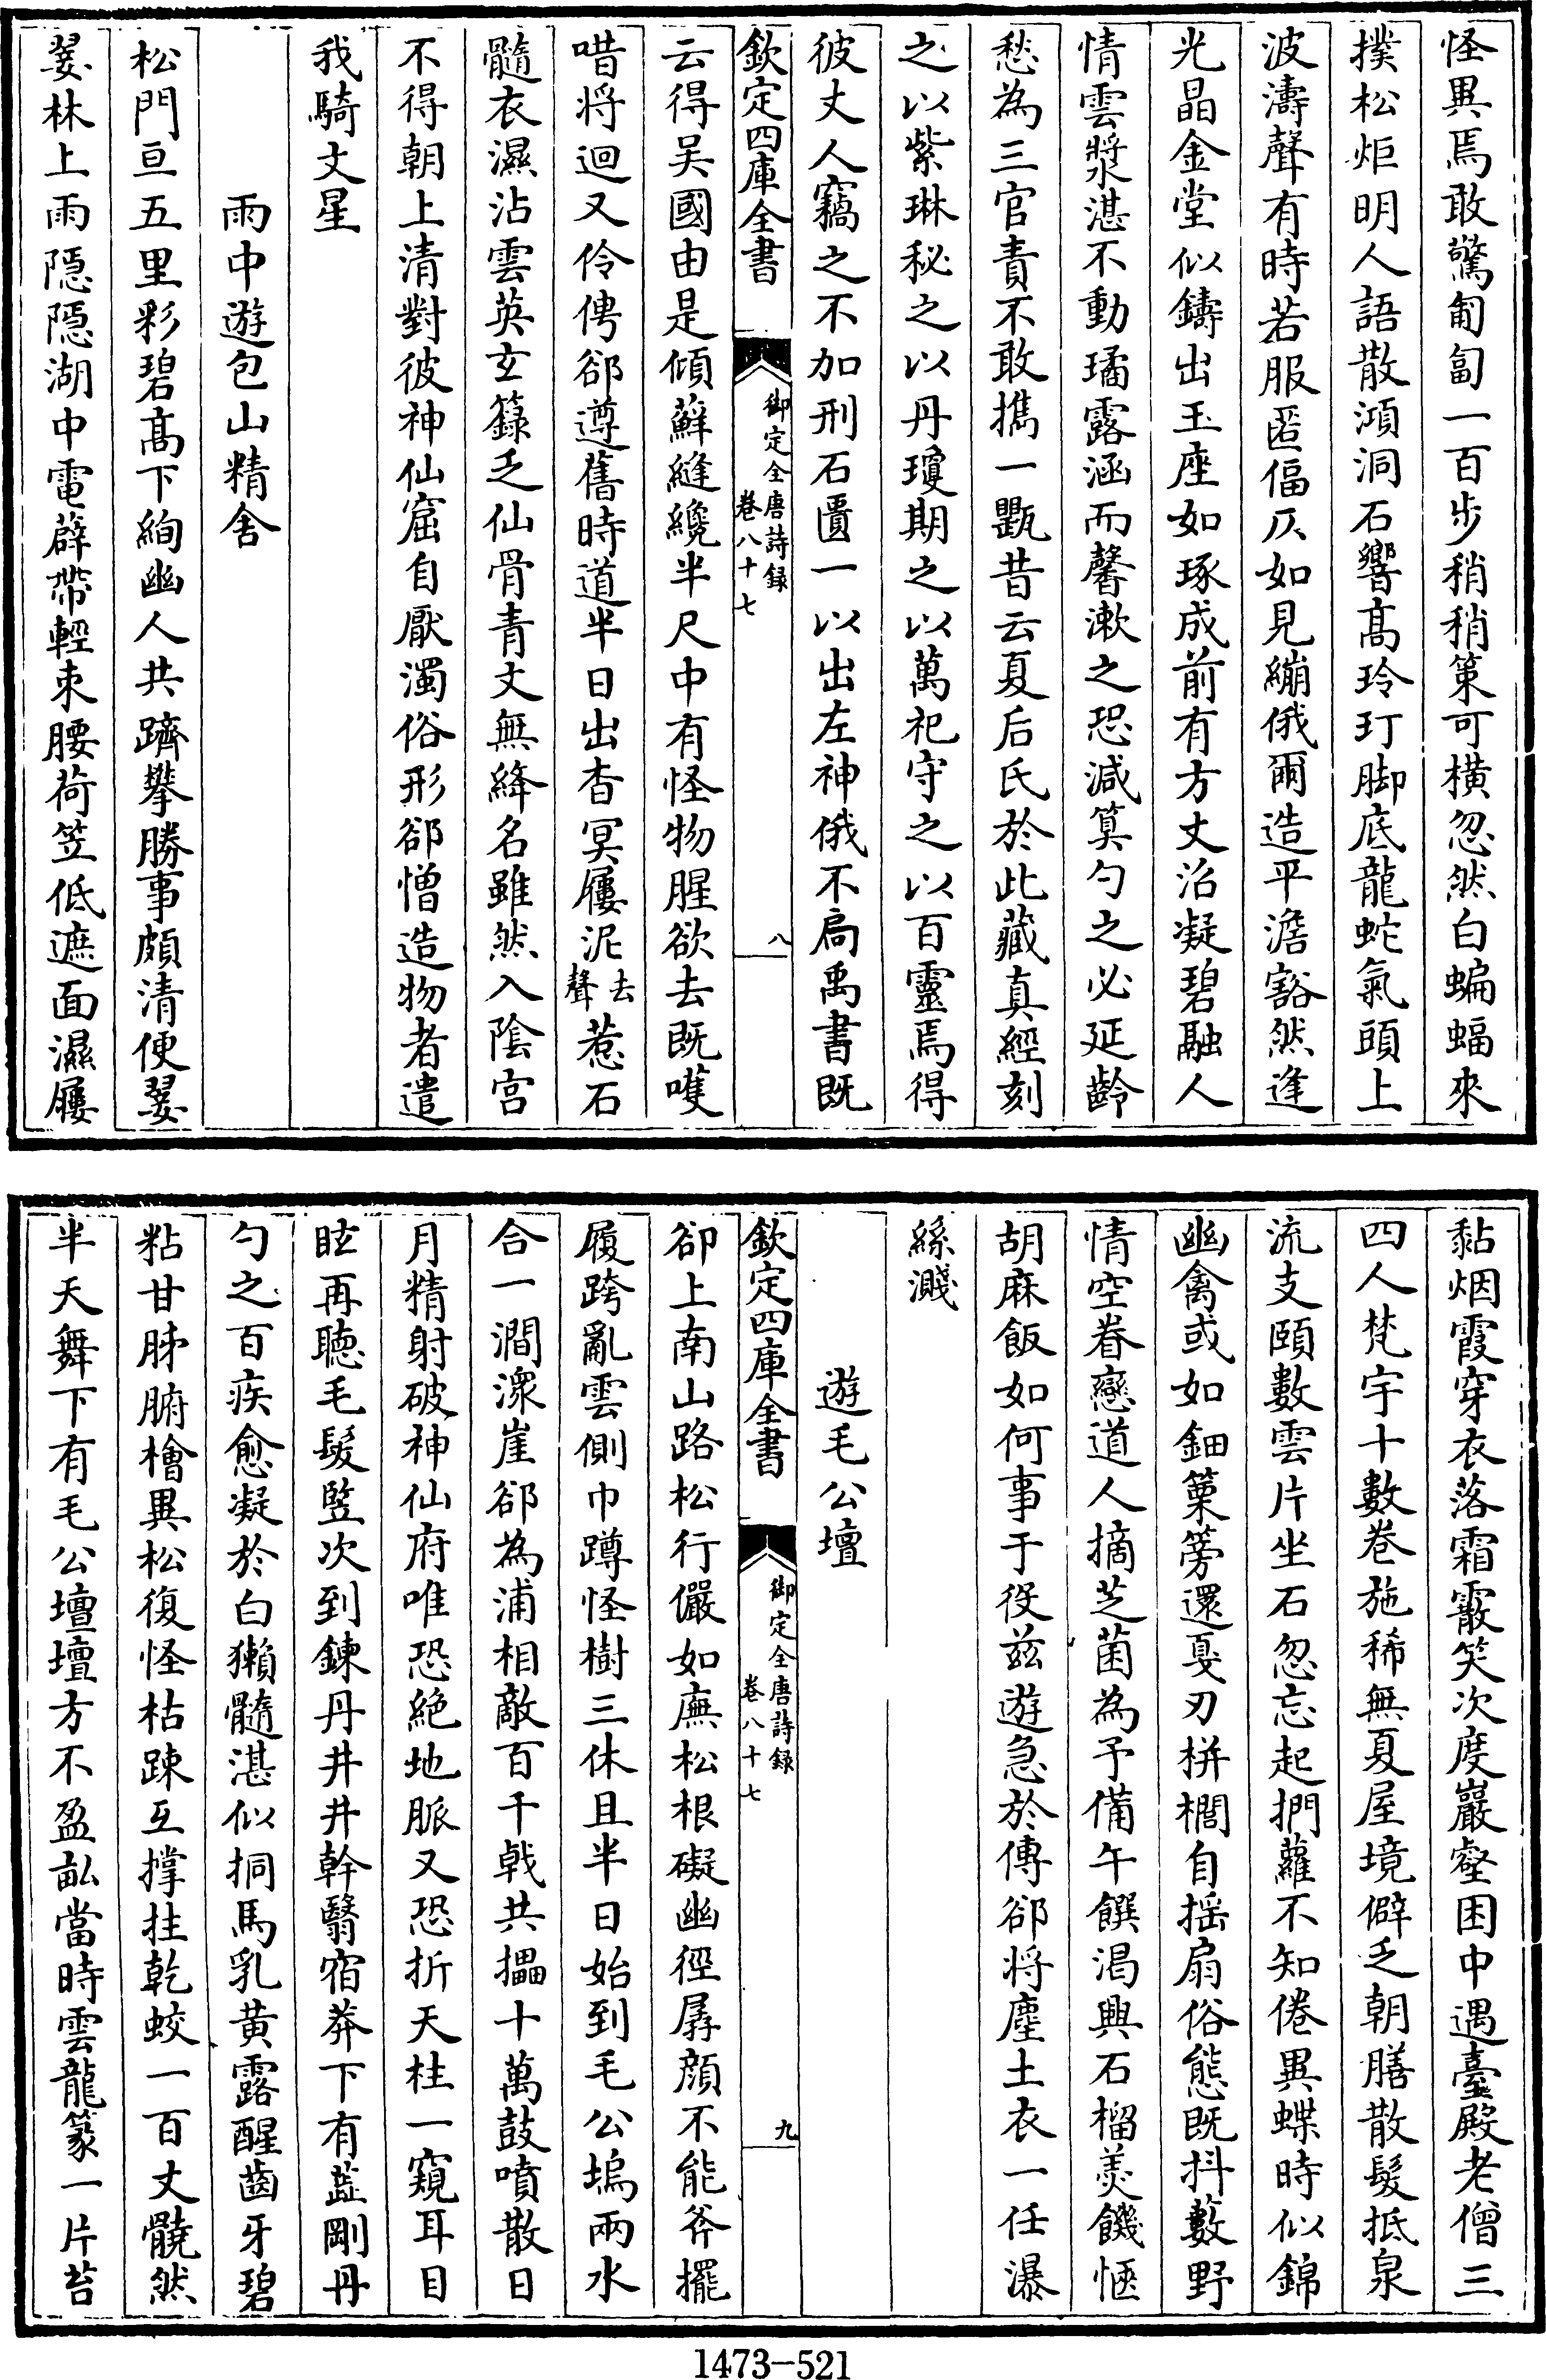 怪異焉敢驚匍匐一百步稍稍策可橫忽然白蝙蝠來
撲松炬明人語散澒洞石響髙玲玎脚底龍蛇氣頭上
波濤聲有時若服匿偪仄如見繃俄爾造平澹豁然逢
光晶金堂似鑄出玉座如琢成前有方丈沼凝碧融人
情雲漿湛不動璚露涵而馨漱之恐減算勺之必延齡
愁為三官責不敢擕一甖昔云夏后氏於此藏真經刻
之以紫琳秘之以丹瓊期之以萬祀守之以百靈焉得
彼丈人竊之不加刑石匱一以出左神俄不扃禹書既
欽定四庫全書
御定全唐詩録
卷八十七
八
云得吳國由是傾蘚縫纔半尺中有怪物腥欲去既嚄
唶将迴又伶俜郤遵舊時道半日出杳冥屨泥去聲惹石
髓衣濕沾雲英𤣥籙乏仙骨青文無絳名雖然入陰宫
不得朝上清對彼神仙窟自厭濁俗形郤憎造物者遣
我騎文星
雨中遊包山精舍
松門亘五里彩碧髙下絢幽人共躋攀勝事頗清便翣
翣林上雨隠隠湖中電薜帶輕束腰荷笠低遮面濕屨
黏烟霞穿衣落霜霰笑次度巖壑困中遇臺殿老僧三
四人梵宇十數卷施稀無夏屋境僻乏朝膳散髮抵泉
流支頤數雲片坐石忽忘起捫蘿不知倦異蝶時似錦
幽禽或如鈿篥簩還戛刃栟櫚自揺扇俗態既抖藪野
情空眷戀道人摘芝菌為予備午饌渴興石榴羮饑愜
胡麻飯如何事于役兹遊急於傳郤将塵土衣一任瀑
絲濺
遊毛公壇
欽定四庫全書
御定全唐詩録
卷八十七
九
卻上南山路松行儼如廡松根礙幽徑孱顔不能斧擺
履跨亂雲側巾蹲怪樹三休且半日始到毛公塢兩水
合一澗潨崖郤為浦相敵百千戟共㩜十萬鼓噴散日
月精射破神仙府唯恐絶地脈又恐折天柱一窺耳目
眩再聽毛髮豎次到鍊丹井井幹翳宿莽下有蕋剛丹
勺之百疾愈凝於白獺髓湛似挏馬乳黄露醒齒牙碧
粘甘胏腑檜異松復怪枯踈互撐拄乾蛟一百丈髐然
半天舞下有毛公壇壇方不盈畝當時雲龍篆一片苔
1473-521